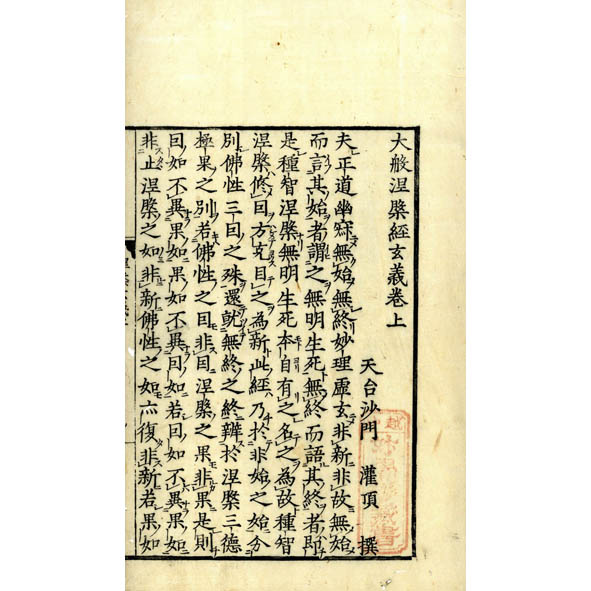 大般涅槃經玄義卷上
天台沙門 灌頂 撰
夫正道幽寂無始無終妙理虛玄非新非故無始
而言其始者謂之無明生死無終而語其終者即
是種智涅槃無明生死本自有之名之為故種智
涅槃修因方克目之為新此經乃於非始之始分
別佛性三因之殊還就無終之終辨於涅槃三德
極果之別若佛性之因非因涅槃之果非果是則
因如不異果如果如不異因如若因如不異果如
非止涅槃之如非新佛性之如亦復非新若果如